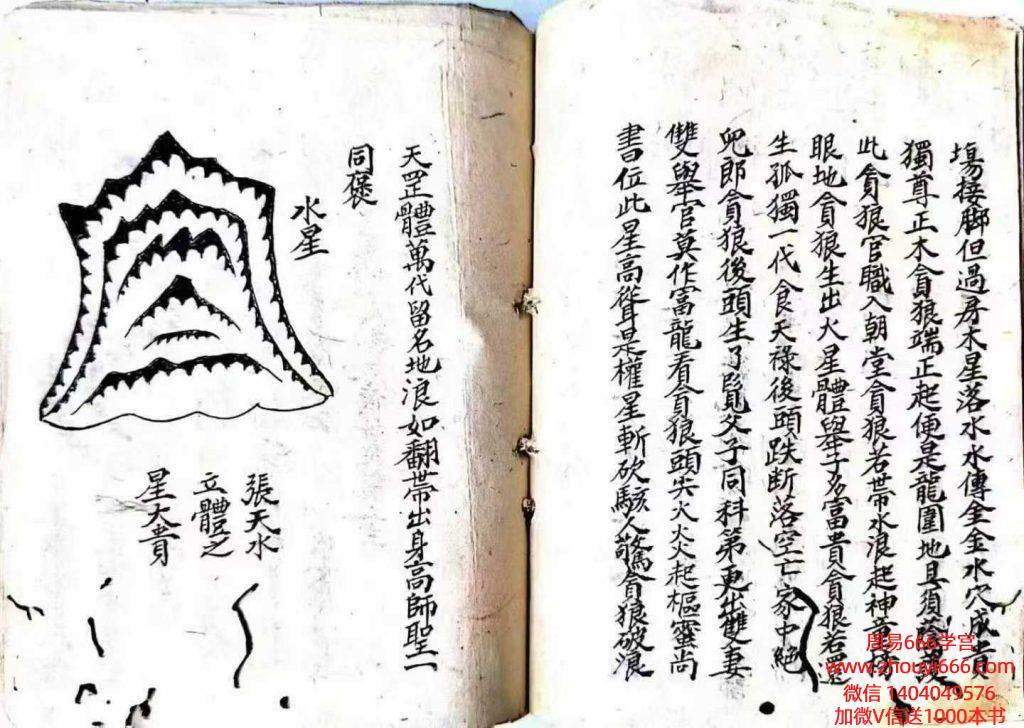 塲接脚但過房木星落水水傳金金水穴成貴
獨尊正木貪狼端正起便是龍圖地且須
此貪狼官職入朝堂貪狼若帶水浪起神童榜
眼地貪狼生出火星體舉子多富貴貪狼若還
生孤獨一代食天祿後頭跌断落空亡家中絶
兒郎貪狼後頭生了覧父子同科第更出雙妻
雙舉官莫作富龍看貪狼頭尖火火起樞密尚
書位此星高聳是權星斬砍駭人驚貪狼破浪
天罡體萬代留名地浪如翻帶出身高師聖一
同褒
水星
張天水
立體之
星大貴
周易666学宫
www.zhouyi666.com
微信 1404049576
加微V信送1000本书